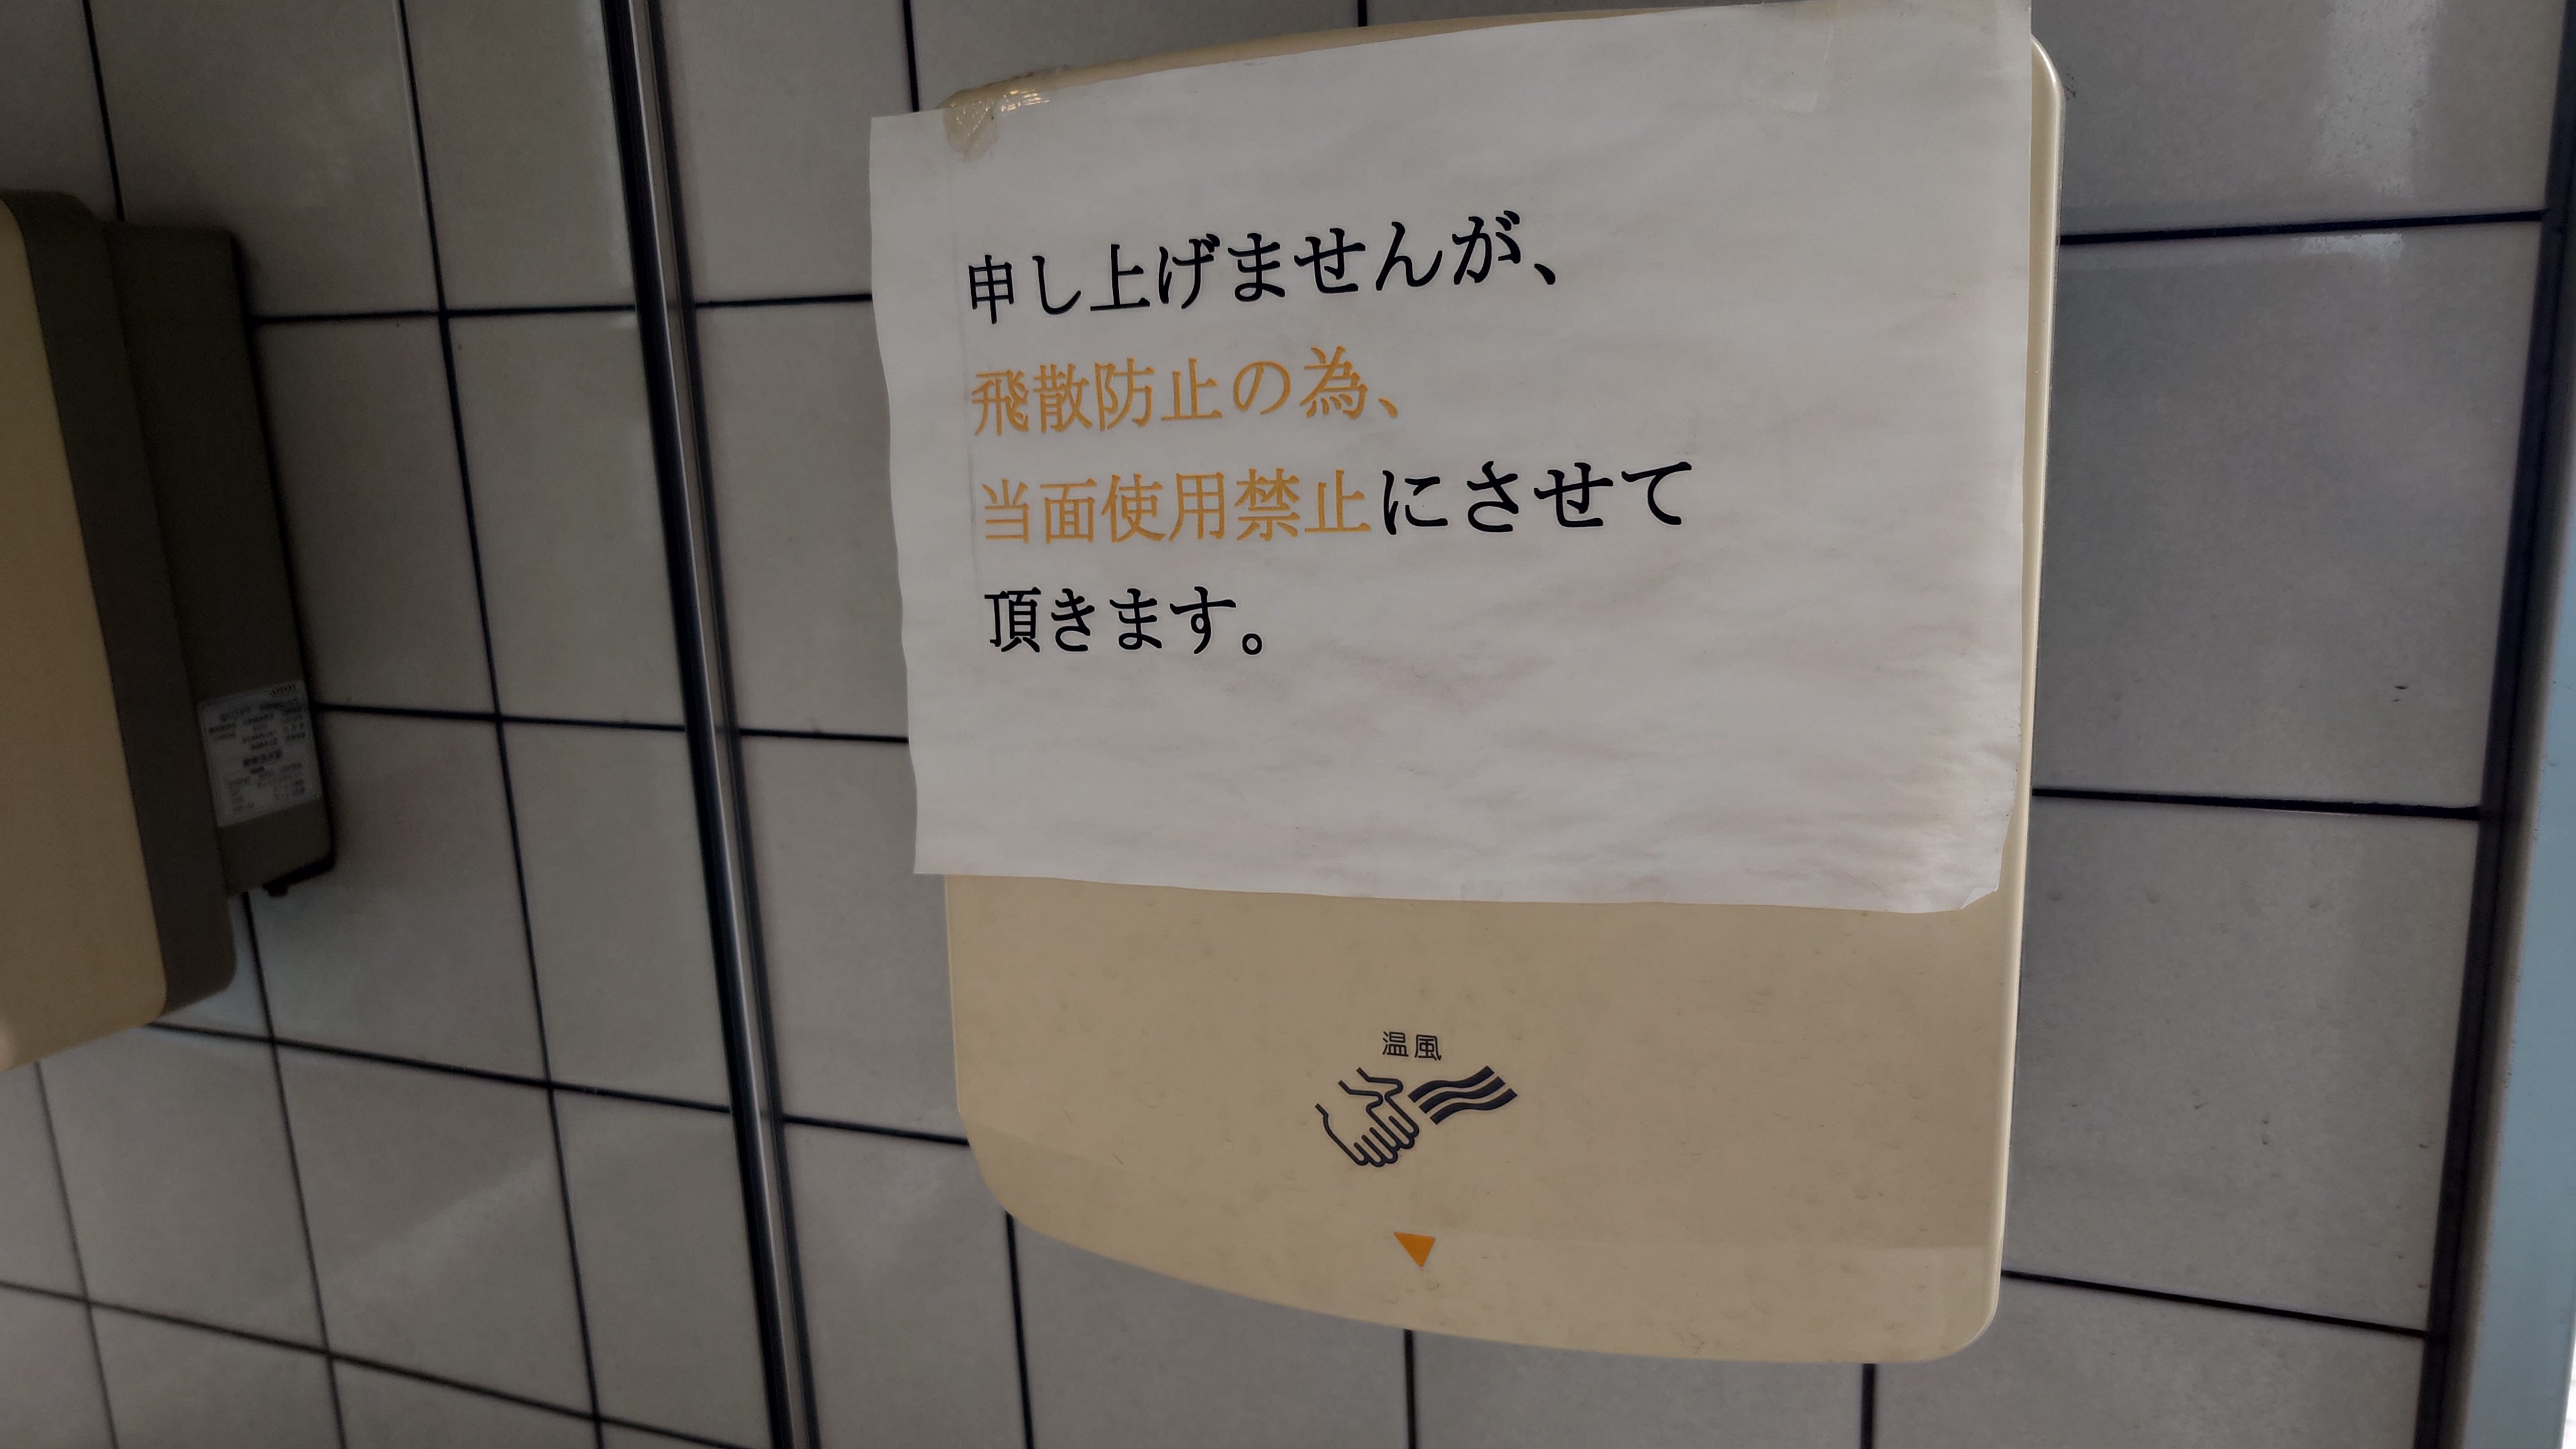 申し上げませんが、
飛散防止の為、
当面使用禁止にさせて
頂きます。
温風